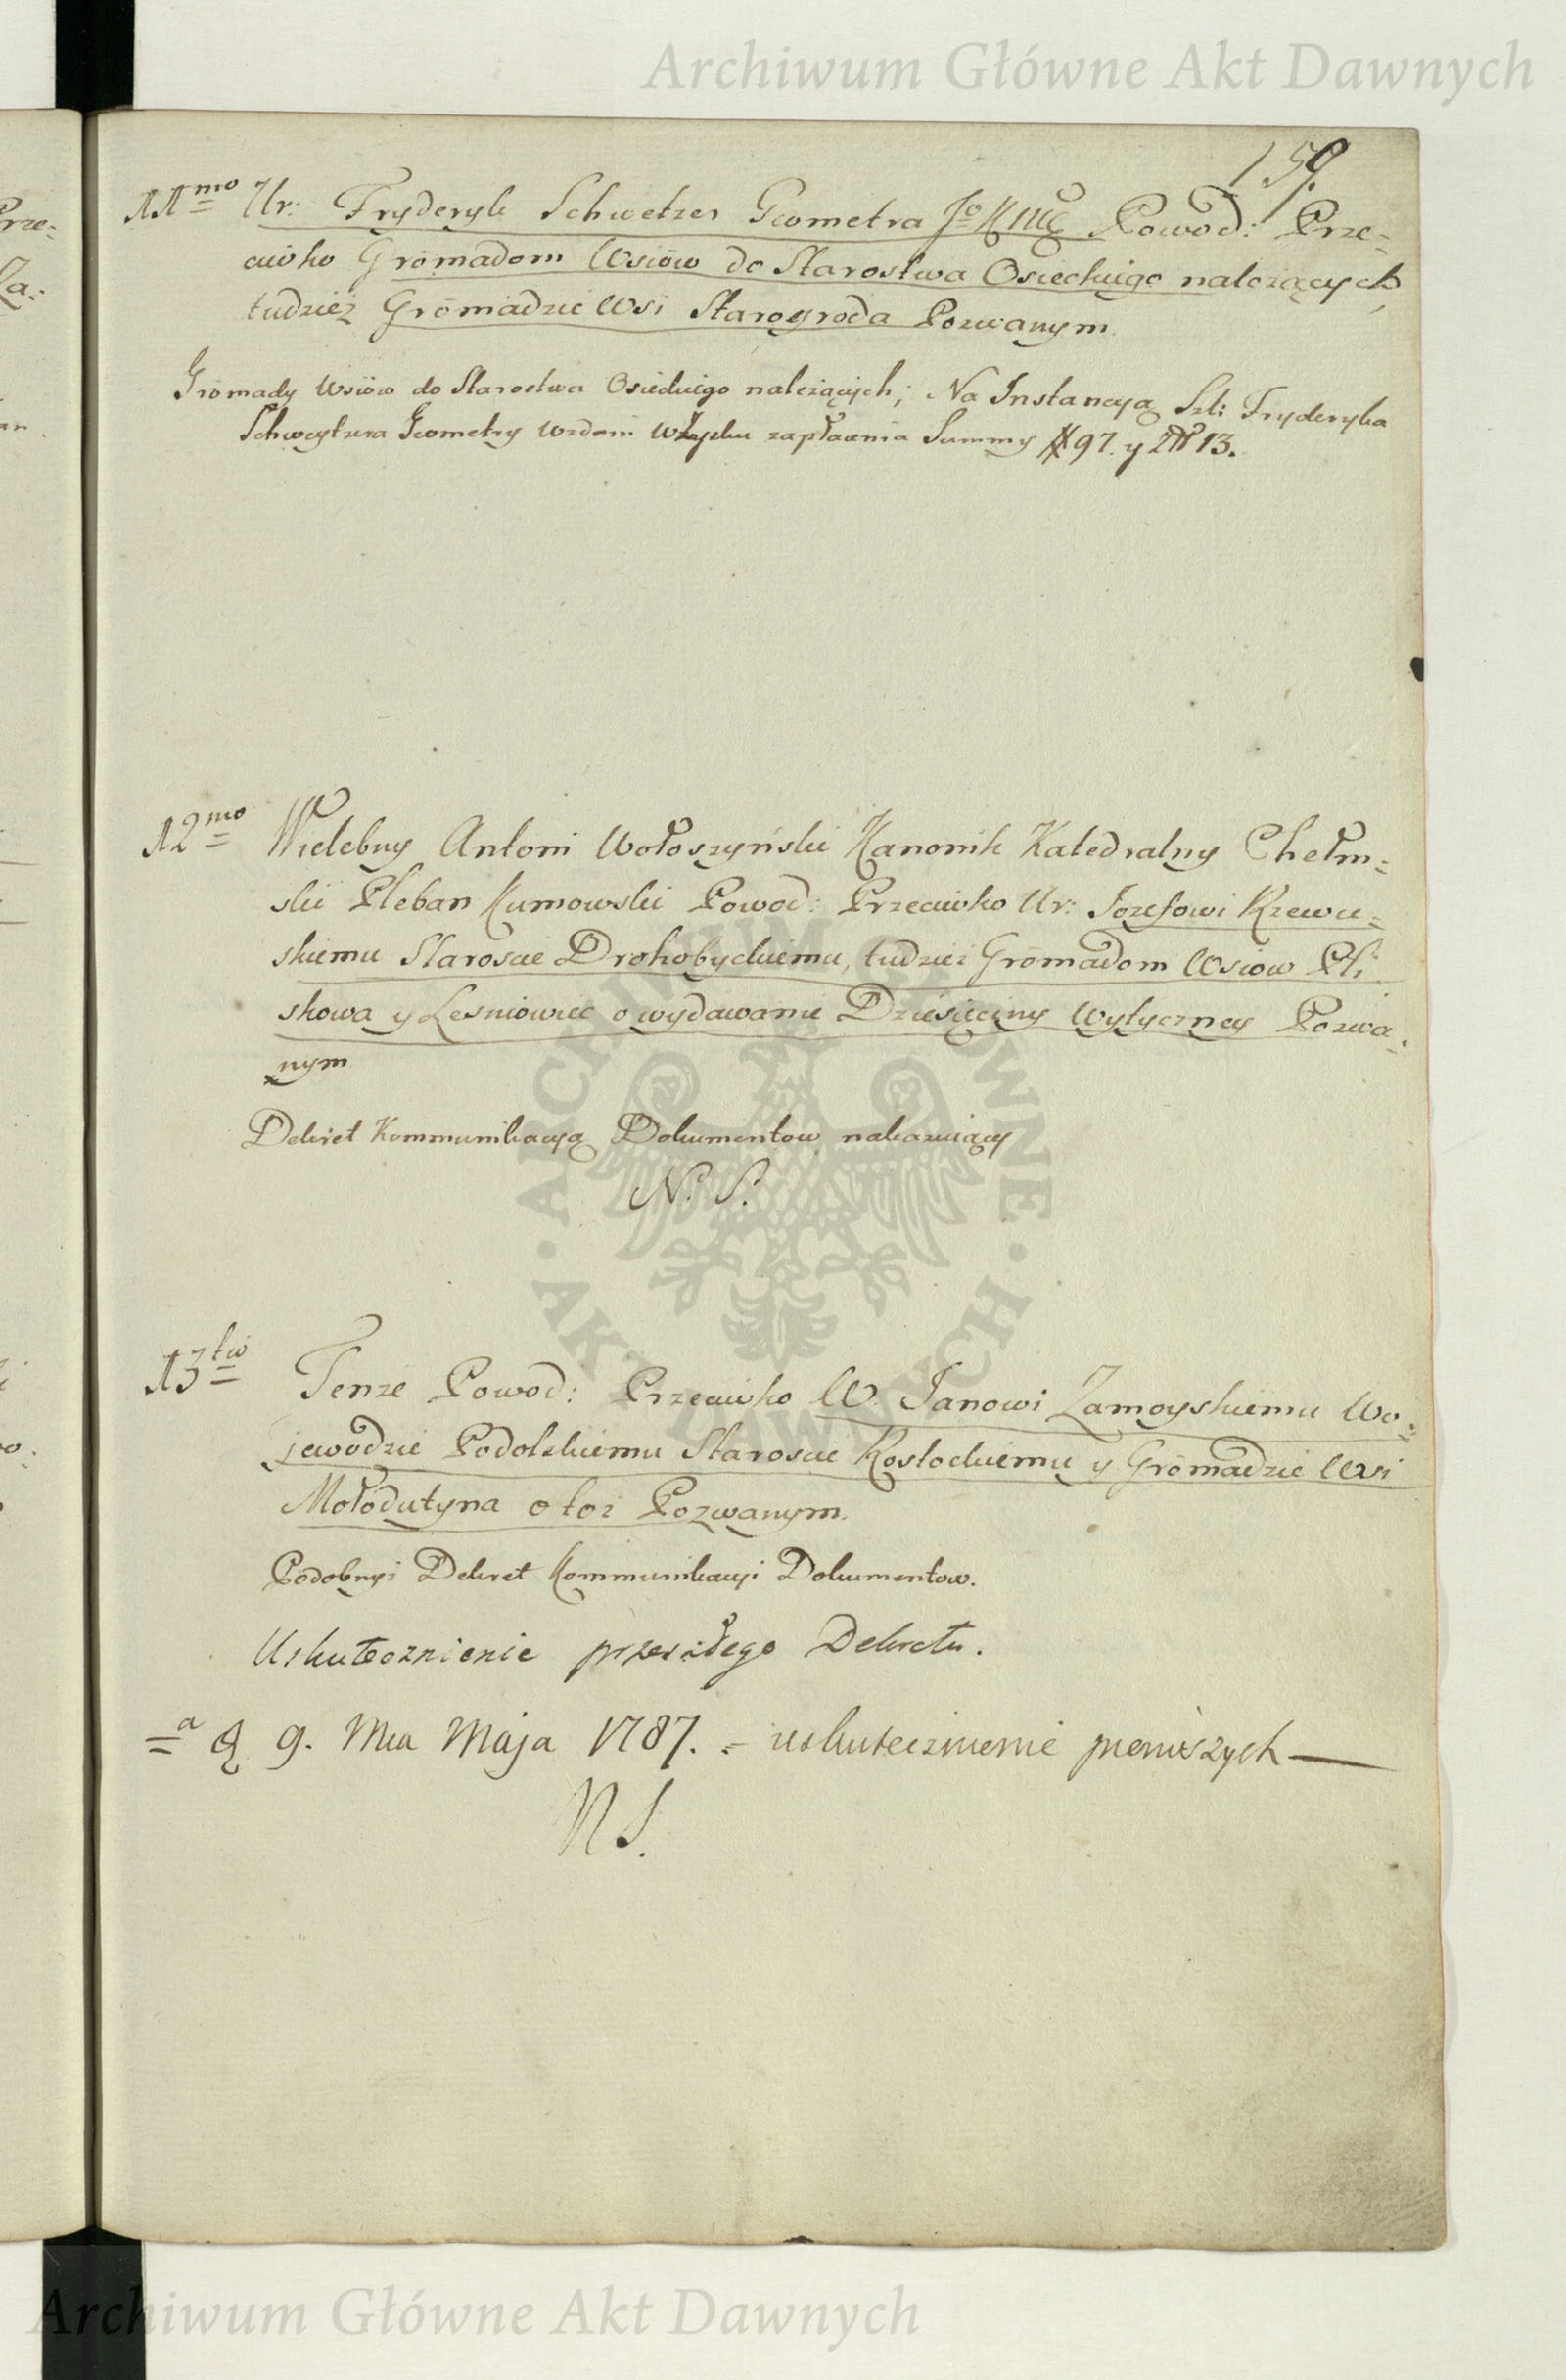 Archiwum Główne Akt Dawnych
159.
11mo Ur: Fryderyk Schwetzer Geometra JoKMci Powod: Prze-
ciwko Gromadom Wsiöw do Starostwa Osieckiego należących,
tudzież Gromadzie Wsi Starogroda Pozwanym
Gromady Wsiöw do Starostwa Osieckiego należących; Na Instancyą Szl: Fryderyka
Schweytzera Geometry w zysku zapłacenia Summy # 97. y Zł 13.
12mo Wielebny Antoni Wołoszyński Kanonik Katedralny Chełm-
skii Pleban Kumowski Powod: Przeciwko Ur: Jozefowi Rzewu-
skiemu Staroscie Drohobyckiemu, tudzież Gromadom Wsiow Pli
skowa y Lesniowiec o wydawanie Dziesięciny Wytyczney Pozwa-
nym
Dekret Kommunikacyą Dokumentow nakazuiący
N. S.
13tio Tenze Powod: Przeciwko W. Janowi Zamoyskiemu Wo-
jewodzie Podolskiemu Staroscie Rostockiemu y Gromadzie Wsi
Mołodutyna o toz Pozwanym.
Podobnyż Dekret Kommunikacyi Dokumentow.
Uskutecznienie przeszłego Dekretu.
9. Mca Maja 1787. = uskutecznienie pierwszych —
NS.
ARCHIWUM GŁÓWNE AKT DAWNYCH
Archiwum Główne Akt Dawnych